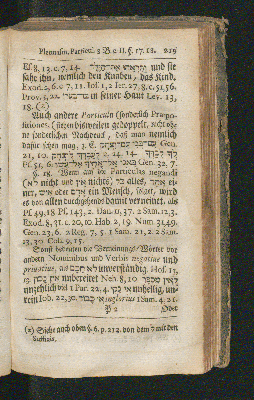 Pleonasm. Particul. 3 B. c. II. §. 17. 18. 219
und sie
sahe ihn, nemlich den Knaben, das Kind.
Exod. 2, 6. c. 7, 11. Jos. 1, 2. Jer. 27, 8. c. 51, 56.
Prov. 5, 22. in seiner Haut Lev. 13,
18. (z)
Auch andere Particuln (sonderlich Præpo-
sitiones) stehen bisweilen gedoppelt, nicht oh-
ne sonderlichen Nachdruck, das man nemlich
dafür sehen mag, z. E. Gen.
21, 10. 2, 14. 14
Pf. 51, 6. Gen. 32, 7.
§. 18. Wenn auf die Particulas negandi
(לא nicht und אין nichts) כל alles, איש ei-
ner, oder אדם ein Mensch, folget, wird
es von allen durchgehends damit verneinet, als
Pf. 49, 18 Pf. 143, 2. Dan. 11, 37. 2 Sam. 12, 3.
Exod. 8, 31. c. 20, 10. Hab. 2, 19. Num. 31, 49.
Gen. 23, 6. 2 Reg. 7, 5. 1 Sam. 21, 2. 2 Sam.
13, 30. Col. 9, 15.
Sonst bedeuten die Verneinungs-Wörter vor
andern Nominibus und Verbis negative und
privative, als לא חכם unverständig. Hos. 13,
13. אין מספר unbereitet Neh. 8, 10
unzehlich viel 1 Par. 22, 4. unheilig, un-
rein Job. 22, 30. אי כבוד inglorius 1 Sam. 4, 21.
P 2 Oder
(z) Siehe auch oben §. 6. p. 212. von dem ל mit den
Suffixis.